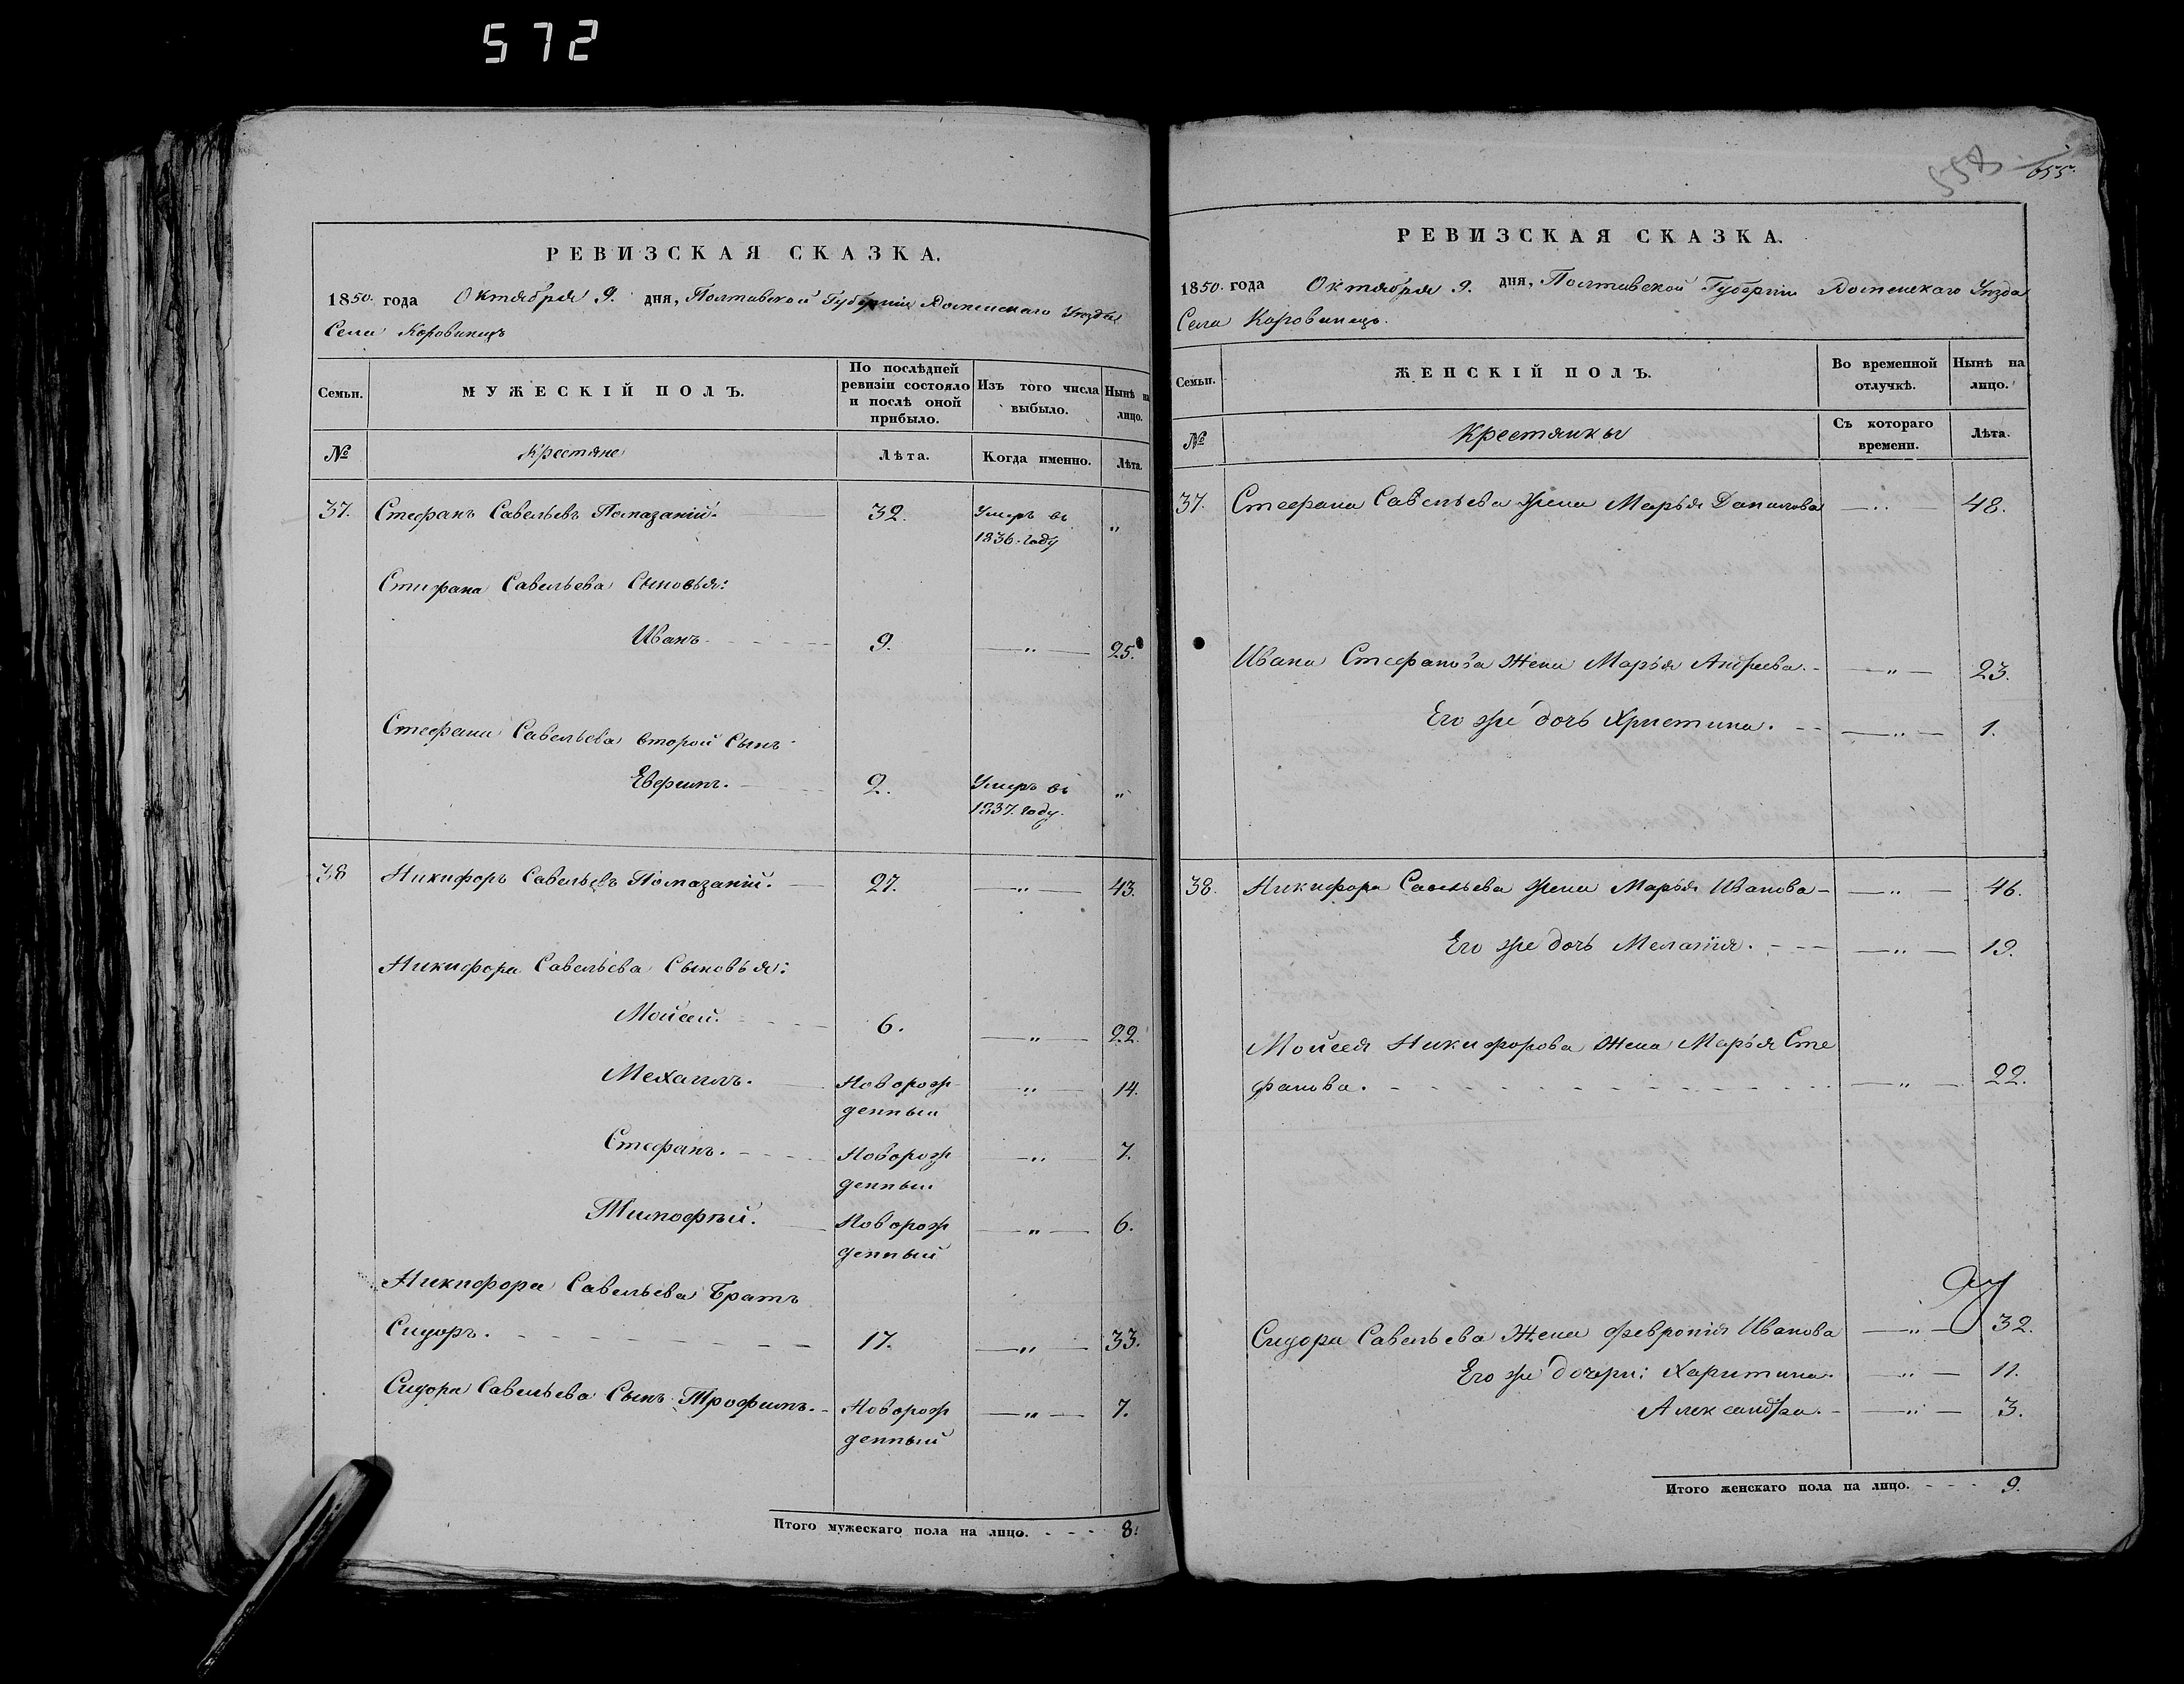 572
558
655.
РЕВИЗСКАЯ СКАЗКА.
1850. года Октября 9. дня, Полтавской Губерніи Роменскаго Уезда
Села Коровинецъ
Семьи.
МУЖЕСКІЙ ПОЛЪ.
По послѣдней ревизіи состояло и послѣ оной прибыло.
Изъ того числа выбыло.
Нынѣ на лицо.
№
Крестяне
Лѣта.
Когда именно.
Лѣта.
37. Стефанъ Савельевъ Помазаній. 32. Умеръ въ 1836. году „
Стифана Савельева Сыновья:
Иванъ. 9. — „ — 25.
Стефана Савельева второй Сынъ
Евфимъ. 2. Умеръ въ 1837. году. „
38 Никифоръ Савельевъ Помазаній. 27. — „ — 43.
Никифора Савельева Сыновья:
Мойсей. 6. — „ — 22.
Механлъ. Новорож- денный — „ — 14.
Стефанъ. Новорож денный — „ — 7.
Тимофей. Новорож денный — „ — 6.
Никифора Савельева Братъ
Сидоръ. 17. — „ — 33.
Сидора Савельева Сынъ Трофимъ. Новорож денный — „ — 7.
Итого мужескаго пола на лицо. - - - 8.
РЕВИЗСКАЯ СКАЗКА.
1850. года Октября 9. дня, Полтавской Губерніи Роменскаго Уезда
Села Коровинецъ.
Семьи.
ЖЕНСКІЙ ПОЛЪ.
Во временной отлучкѣ.
Нынѣ на лицо.
№
Крестянкы
Съ котораго времени.
Лѣта.
37. Стефана Савельева Жена Марья Данилова — „ — 48.
Ивана Стефанова Жена Марья Андреева. — „ — 23.
Его же дочь Христина. — „ — 1.
38. Никифора Савельева Жена Марья Иванова — „ — 46.
Его же дочь Мелагія. — „ — 19.
Мойсея Никифорова Жена Марья Сте
фанова. — „ — 22.
Сидора Савельева Жена Февронія Иванова — „ — 32.
Его же дочери: Харитина. — „ — 11.
Александра. — „ — 3.
Итого женскаго пола на лицо. - - - 9.